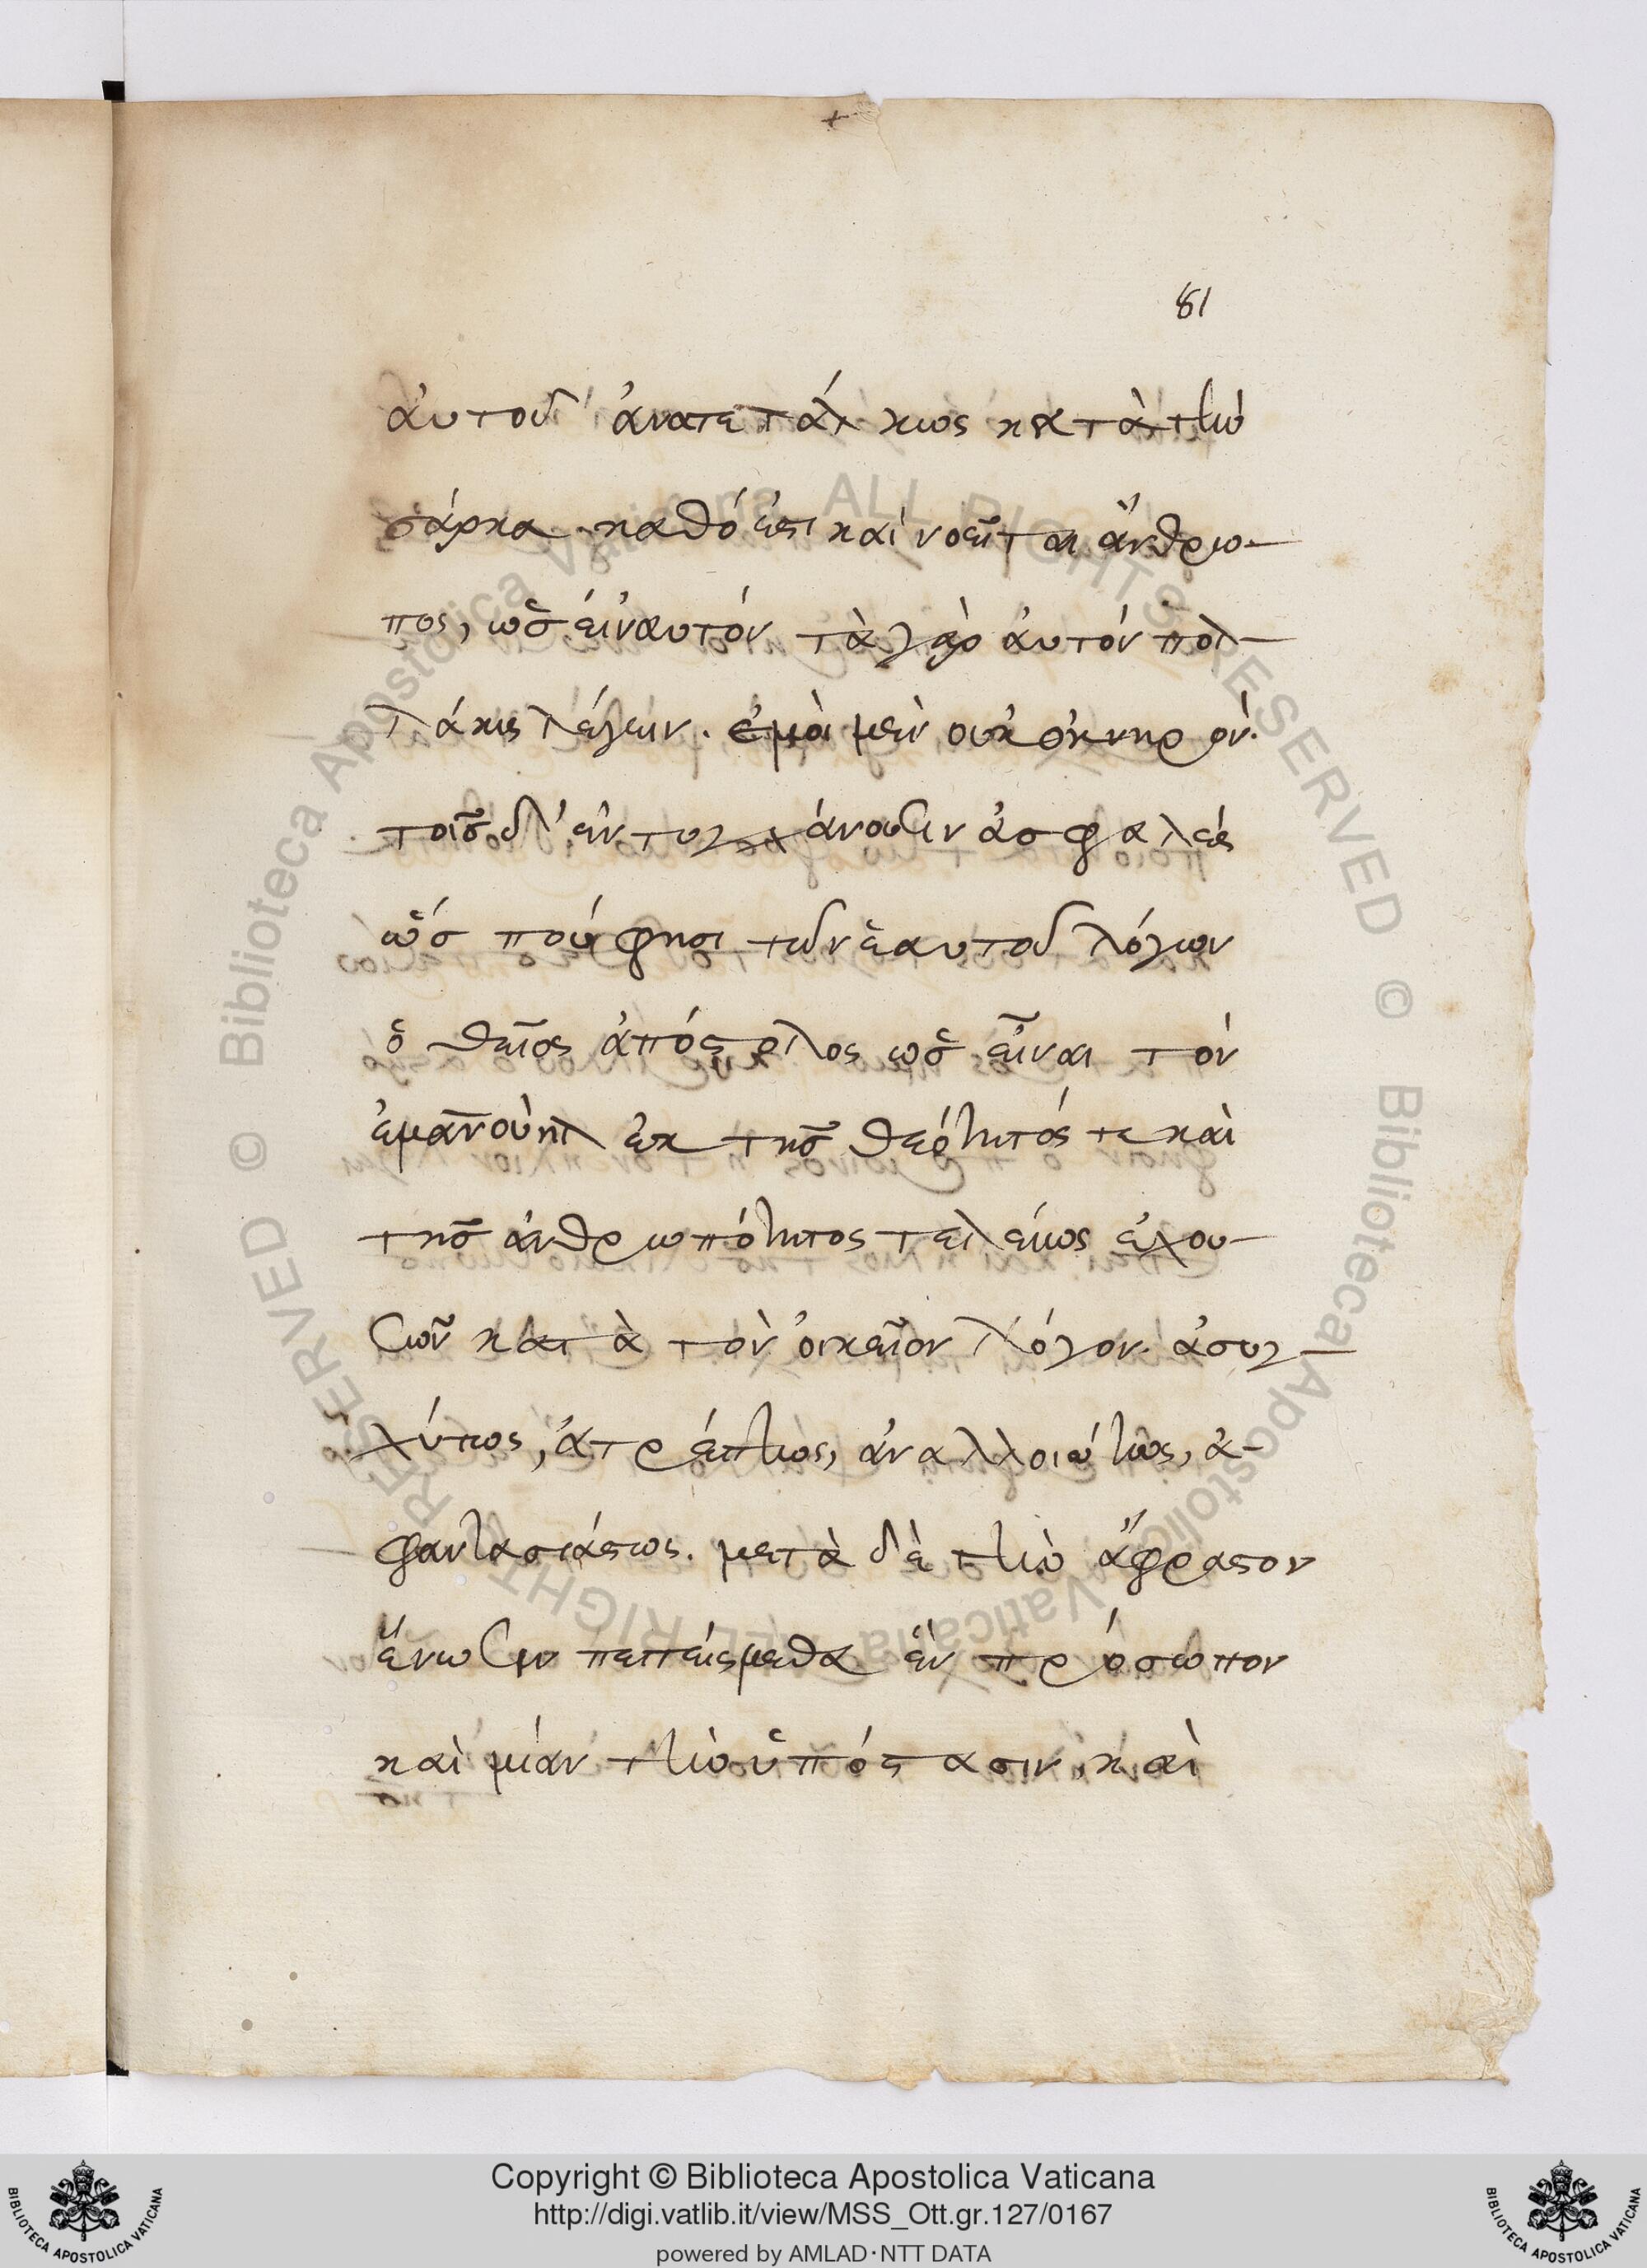 81
αὐτοῦ ἀνατετάχθως κατὰ τὴν
σάρκα. καθό ἐστι καὶ νοεῖται ἄνθρω-
πος, ὡς εἰν αυτόν τὰ γὰρ αὐτόν πολ-
λάκις λέγειν. ἐμοὶ μὲν οὐκ ὀκνηρόν.
τοῖς δ' ἐντυγχάνουσιν ἀσφαλές
ὥς που φησι τῶν ἑαυτοῦ λόγων
ὁ θεῖος ἀπόστολος ὡς εἶναι τὸν
ἐμανουὴλ ἐκ τῆς θεότητός τε καὶ
τῆς ἀνθρωπότητος τελείως ἐχου-
σῶν κατὰ τὸν οἰκεῖον λόγον. ἀσυγ-
χύτως, ἀτρέπτως, ἀναλλοιώτως, ἀ-
φαντασιάστως. μετὰ δὲ τὴν ἄφραστον
ἕνωσιν πεπείσμεθα ἓν πρόσωπον
καὶ μίαν τὴν ὑπόστασιν, καὶ
Copyright © Biblioteca Apostolica Vaticana
http://digi.vatlib.it/view/MSS_Ott.gr.127/0167
powered by AMLAD·NTT DATA
BIBLIOTECA APOSTOLICA VATICANA
BIBLIOTECA APOSTOLICA VATICANA
© Biblioteca Apostolica Vaticana ALL RIGHTS RESERVED © Biblioteca Apostolica Vaticana ALL RIGHTS RESERVED